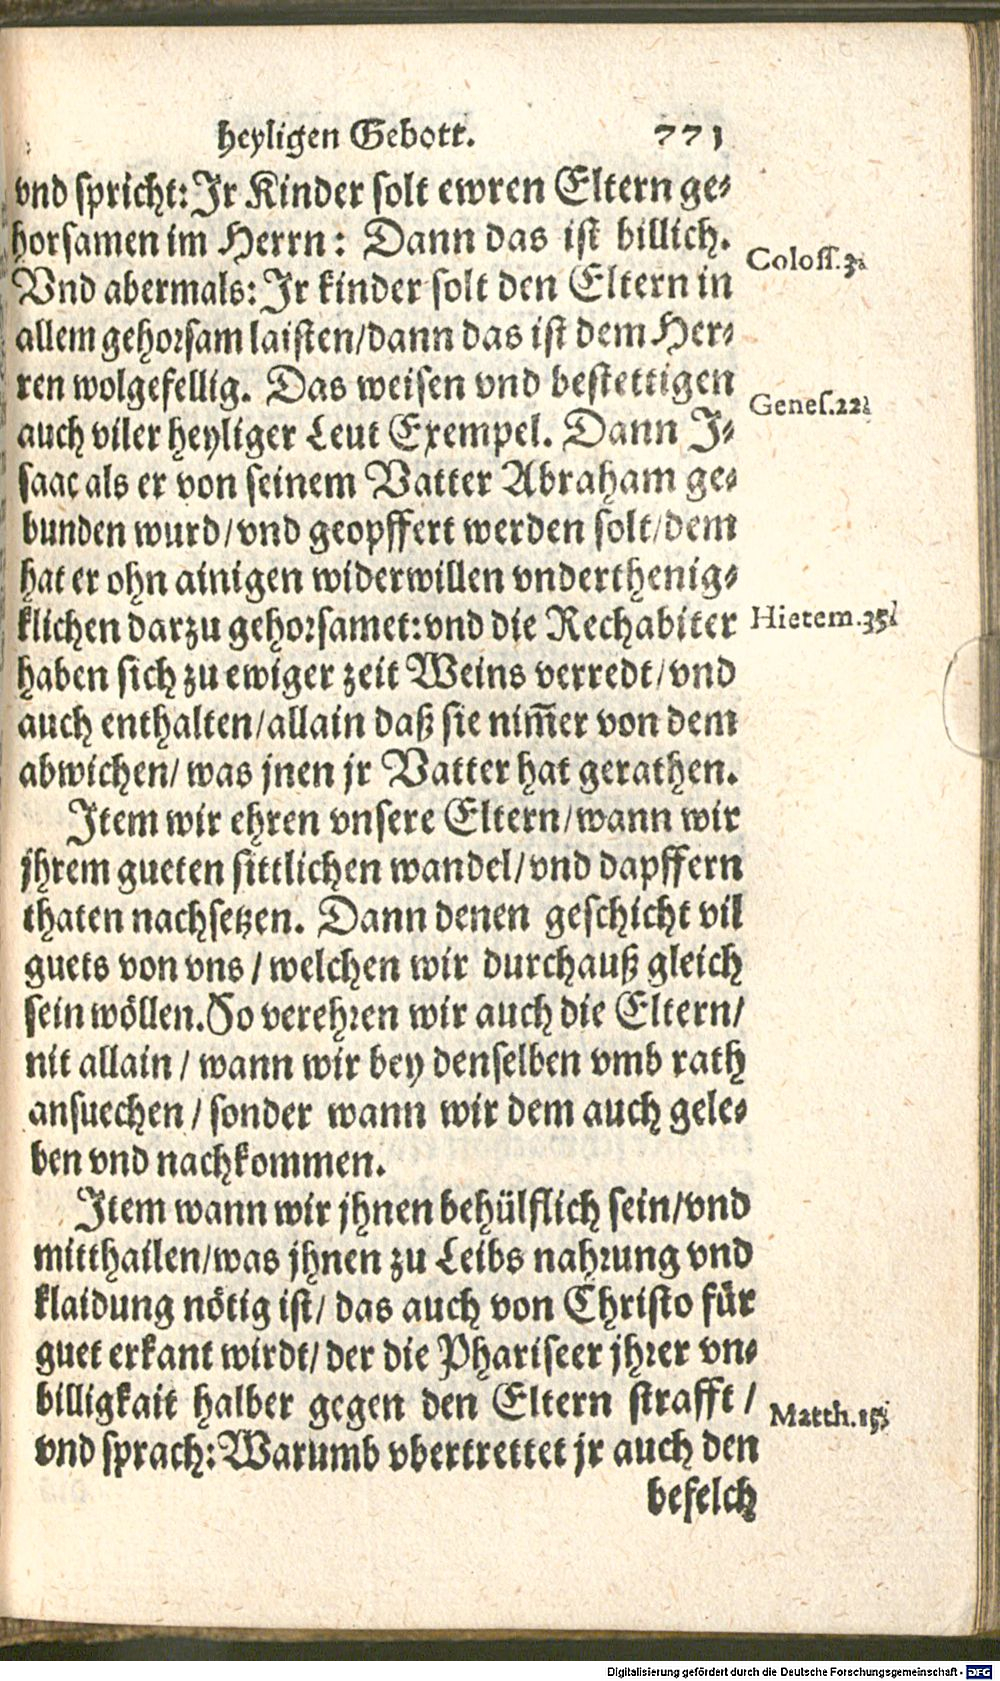 heyligen Gebott. 771
vnd spricht: Jr Kinder solt ewren Eltern ge⸗
horsamen im Herrn: Dann das ist billich.
Coloss.3.
Vnd abermals: Jr kinder solt den Eltern in
allem gehorsam laisten/dann das ist dem Her⸗
ren wolgefellig. Das weisen vnd bestettigen
Genes.22.
auch viler heyliger Leut Exempel. Dann J⸗
saac als er von seinem Vatter Abraham ge⸗
bunden wurd/vnd geopffert werden solt/dem
hat er ohn ainigen widerwillen vnderthenig⸗
klichen darzu gehorsamet: vnd die Rechabiter
Hierem.35.
haben sich zu ewiger zeit Weins verredt/vnd
auch enthalten/allain daß sie nim̃er von dem
abwichen/was jnen jr Vatter hat gerathen.
Jtem wir ehren vnsere Eltern/wann wir
jhrem gueten sittlichen wandel/vnd dapffern
thaten nachsetzen. Dann denen geschicht vil
guets von vns/welchen wir durchauß gleich
sein wöllen. So verehren wir auch die Eltern/
nit allain/wann wir bey denselben vmb rath
ansuechen/sonder wann wir dem auch gele⸗
ben vnd nachkommen.
Jtem wann wir jhnen behülflich sein/vnd
mitthailen/was jhnen zu Leibs nahrung vnd
klaidung nötig ist/das auch von Christo für
guet erkant wirdt/der die Phariseer jhrer vn⸗
billigkait halber gegen den Eltern strafft/
Matth.15.
vnd sprach: Warumb vbertrettet jr auch den
befelch
Digitalisierung gefördert durch die Deutsche Forschungsgemeinschaft - DFG